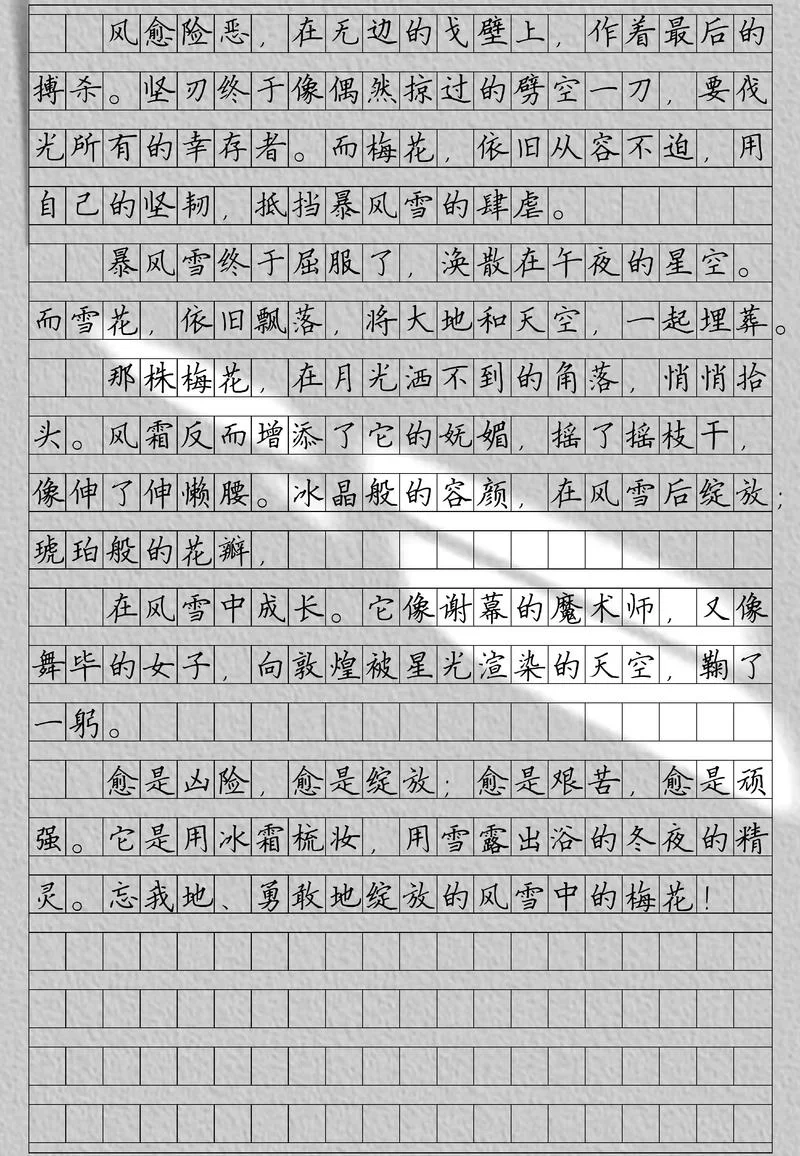 风愈险恶，在无边的戈壁上，作着最后的
搏杀。坚刃终于像偶然掠过的劈空一刀，要伐
光所有的幸存者。而梅花，依旧从容不迫，用
自己的坚韧，抵挡暴风雪的肆虐。
暴风雪终于屈服了，涣散在午夜的星空。
而雪花，依旧飘落，将大地和天空，一起埋葬。
那株梅花，在月光洒不到的角落，悄悄抬
头。风霜反而增添了它的妩媚，摇了摇枝干，
像伸了伸懒腰。冰晶般的容颜，在风雪后绽放；
琥珀般的花瓣，
在风雪中成长。它像谢幕的魔术师，又像
舞毕的女子，向敦煌被星光渲染的天空，鞠了
一躬。
愈是凶险，愈是绽放；愈是艰苦，愈是顽
强。它是用冰霜梳妆，用雪露出浴的冬夜的精
灵。忘我地、勇敢地绽放的风雪中的梅花！